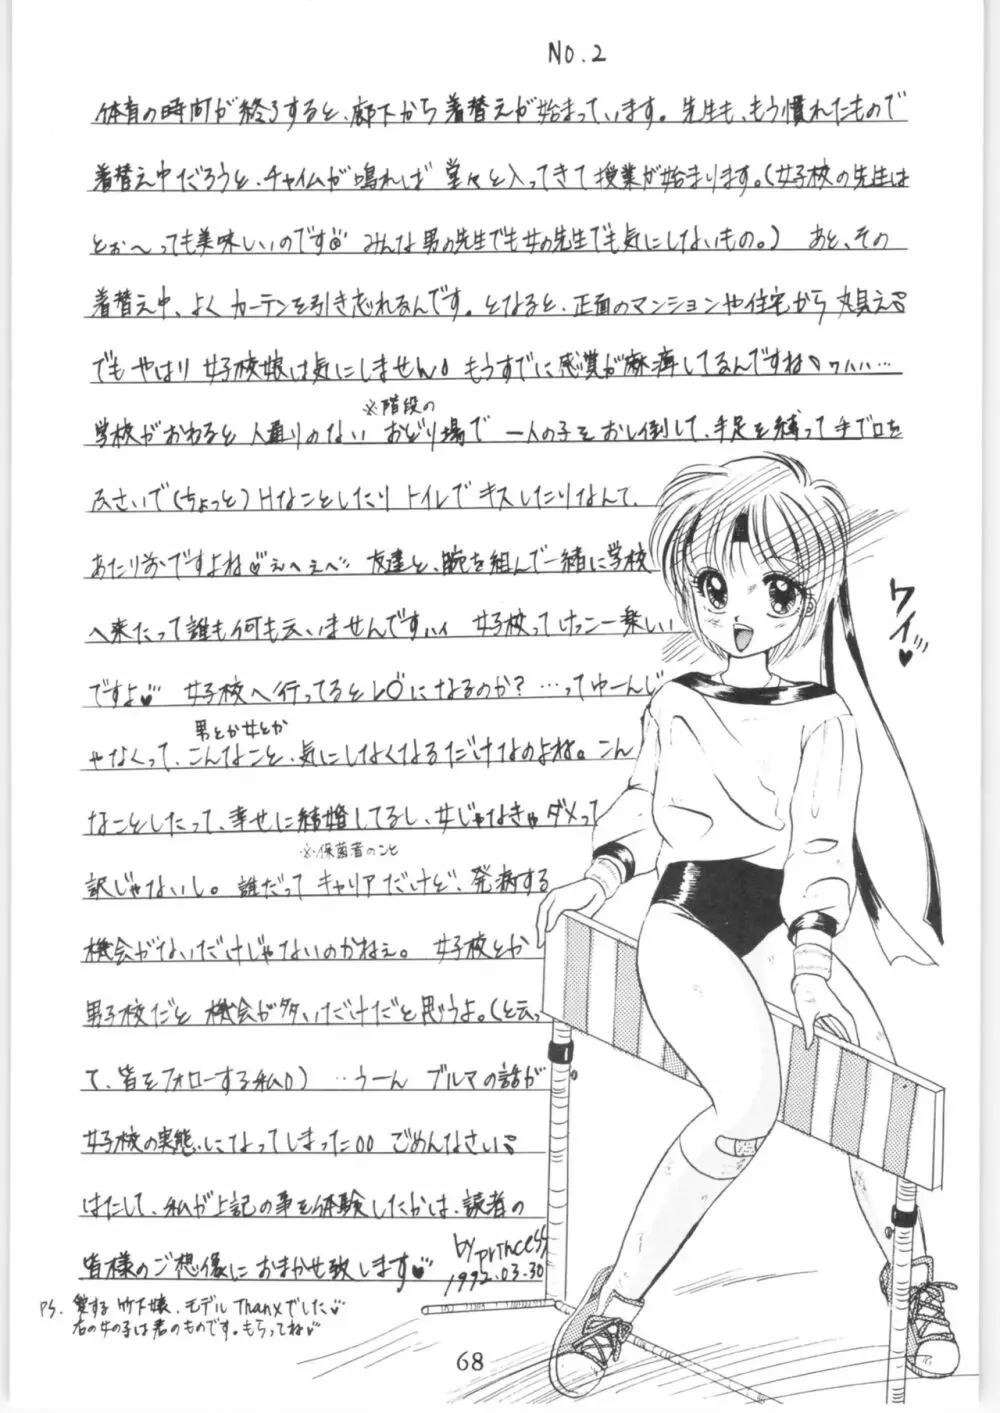 NO.2
体育の時間が終了すると、廊下から着替えが始まっています。先生も、もう慣れたもので
着替え中だろうと、チャイムが鳴れば堂々と入ってきて授業が始まります。(女子校の先生は
とぉ〜っても美味しいのです みんな男の先生でも女の先生でも気にしないもの。) あと、その
着替え中、よくカーテンを引き忘れるんです。となると、正面のマンションや住宅から丸見え
でもやはり女子校娘は気にしません もうすでに感覚が麻痺してるんですね ワハハハ…
※階段の
学校がおわると人通りのないおどり場で一人の子をおし倒して、手足を縛って手で口を
ふさいで(ちょっと)Hなことしたりトイレでキスしたりなんて、
あたりまえですよね♡えへえへ 友達と、腕を組んで一緒に学校
へ来たって誰も何も云いませんですハイ 女子校ってけっこー楽しい
ですよ♡ 女子校へ行ってるとレ○になるのか?…ってゆーんじ
男とか女とか
ゃなくって、こんなこと、気にしなくなるだけなのよね。こん
なことしたって、幸せに結婚してるし、女じゃなきゃダメって
※保菌者のこと
訳じゃないし。誰だってキャリアだけど、発病する
機会がないだけじゃないのかねぇ。女子校とか
男子校だと機会が多いだけだと思うよ。(と云っ
て、皆をフォローする私) ‥うーん ブルマの話が
女子校の実態‥になってしまった ごめんなさい
はたして、私が上記の事を体験したかは、読者の
皆様のご想像におまかせ致します♡
by princess
1992.03.30
P.S. 愛する竹下嬢、モデルThanxでした
右の女の子は君のものです。もらってね♡
ワーイ♥
68